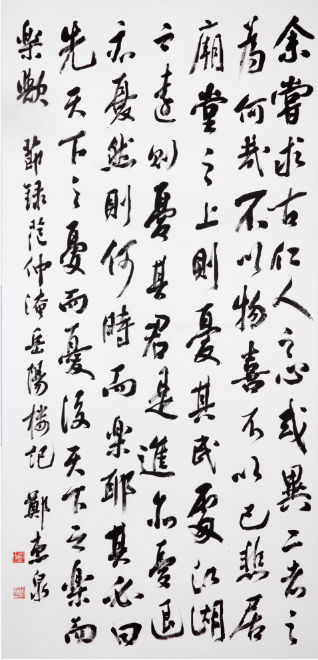 余嘗求古仁人之心或異二者之
為何哉不以物喜不以己悲居
廟堂之上則憂其民處江湖
之遠則憂其君是進亦憂退
亦憂然則何時而樂耶其必曰
先天下之憂而憂後天下之樂而
樂歟 節録范仲淹岳陽樓記 鄭惠泉